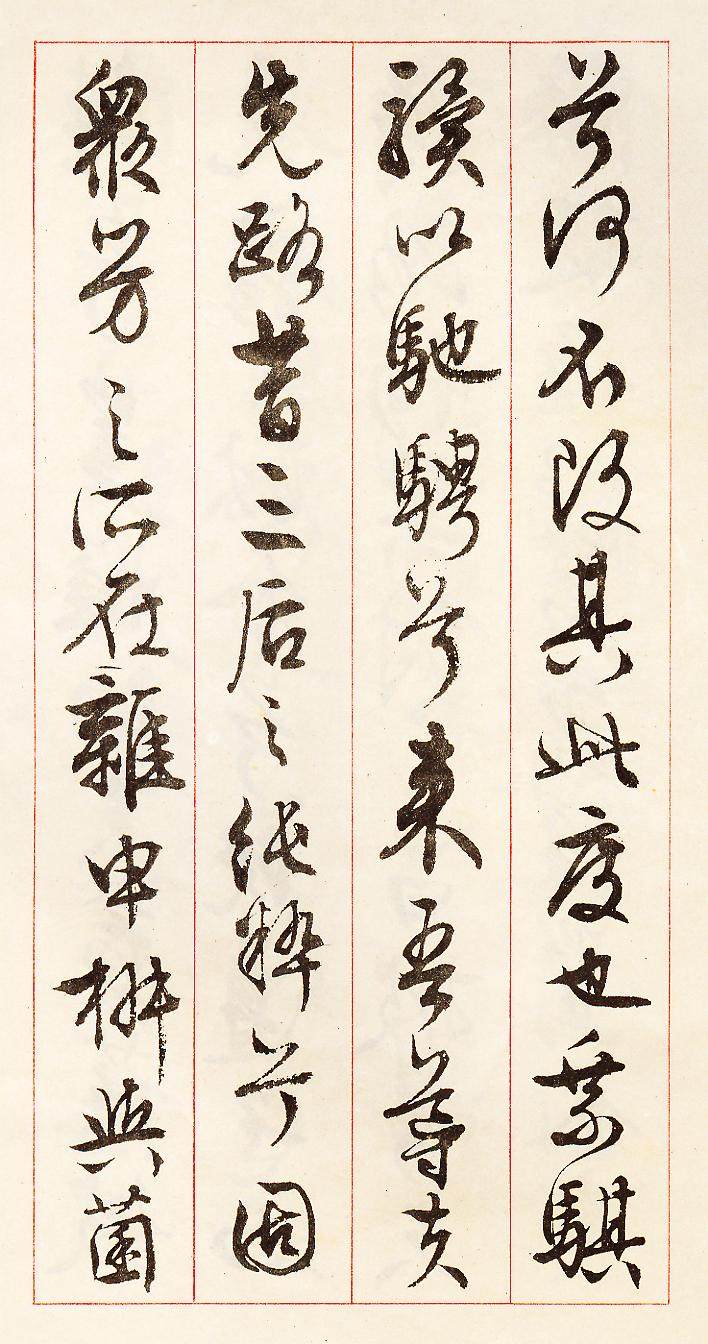 兮何不改其此度也乘騏
驥以馳騁兮來吾導夫
先路昔三后之純粹兮固
眾芳之所在雜申椒與菌